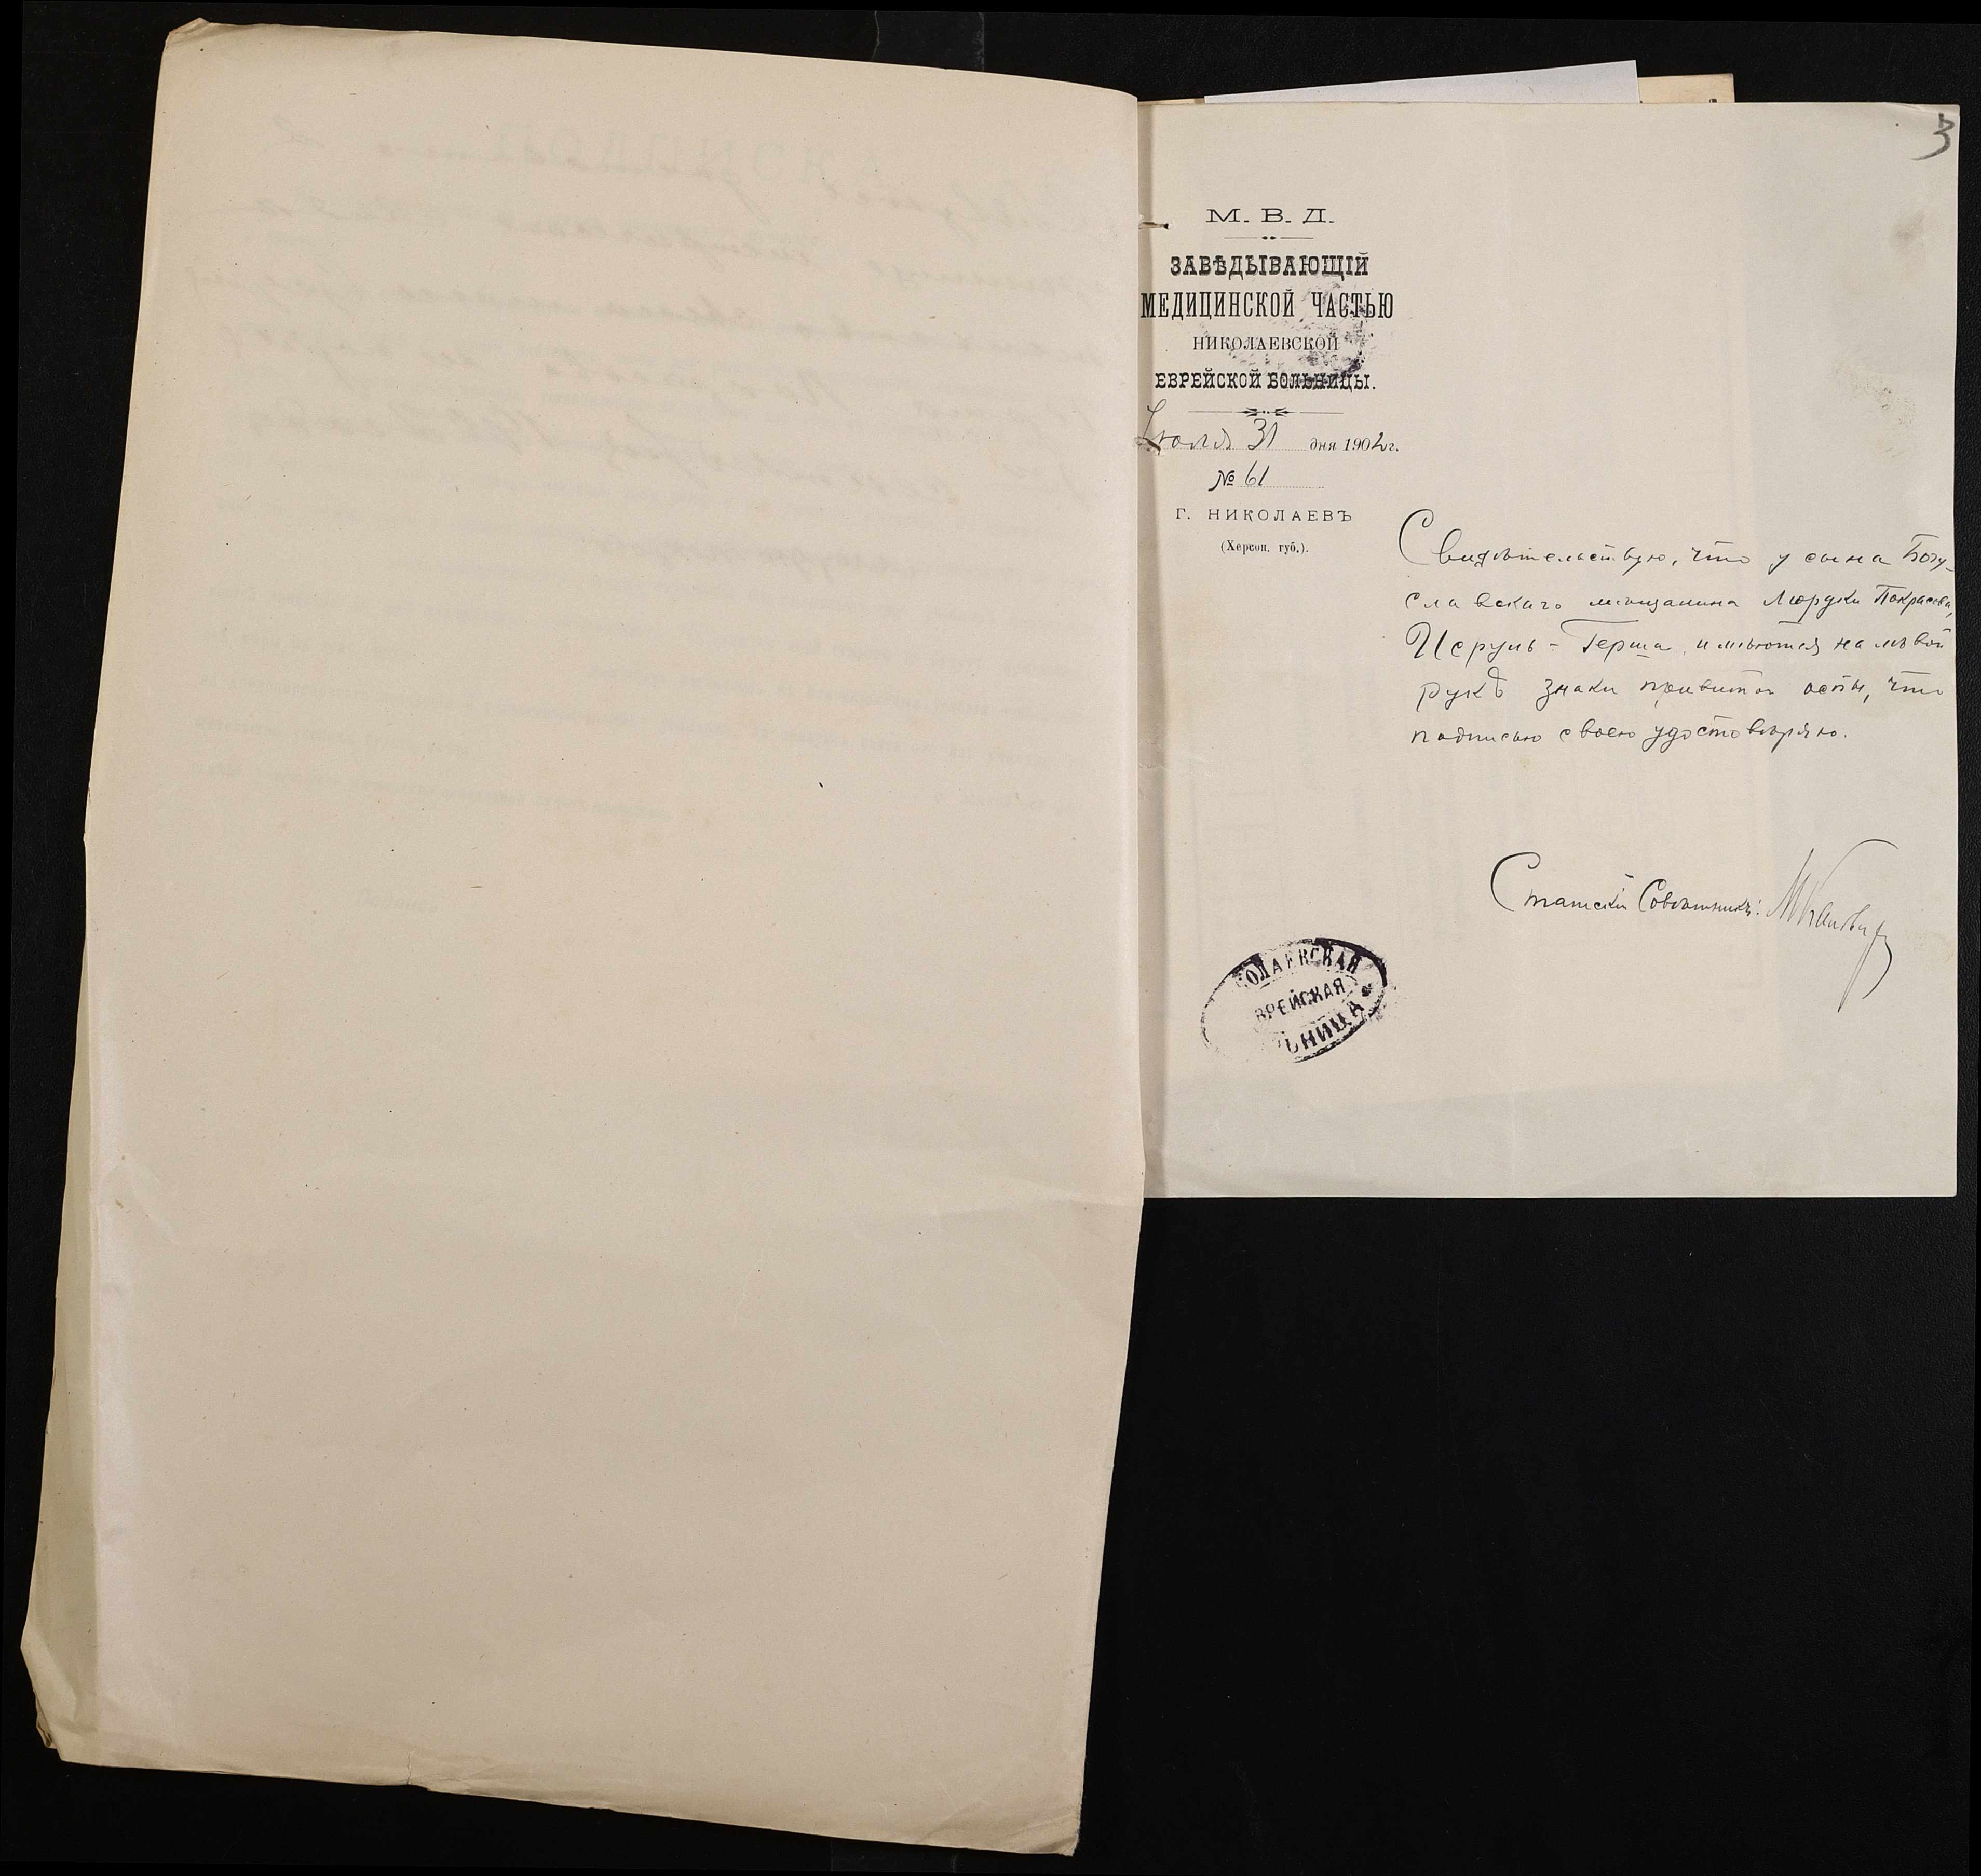 3
М. В. Д.
ЗАВѢДЫВАЮЩІЙ
МЕДИЦИНСКОЙ ЧАСТЬЮ
НИКОЛАЕВСКОЙ
ЕВРЕЙСКОЙ БОЛЬНИЦЫ.
Іюля 31 дня 1902 г.
№ 61
Г. НИКОЛАЕВЪ
(Херсон. губ.).
Свидѣтельствую, что у сына Богу-
славскаго мѣщанина Мордки Покрасова,
Исруль-Герша, имѣются на лѣвой
рукѣ знаки привитой оспы, что
подписью своею удостовѣряю.
Статскій Совѣтникъ:
ОЛАЕВСКАЯ
ВРЕЙСКАЯ
ЬНИЦА